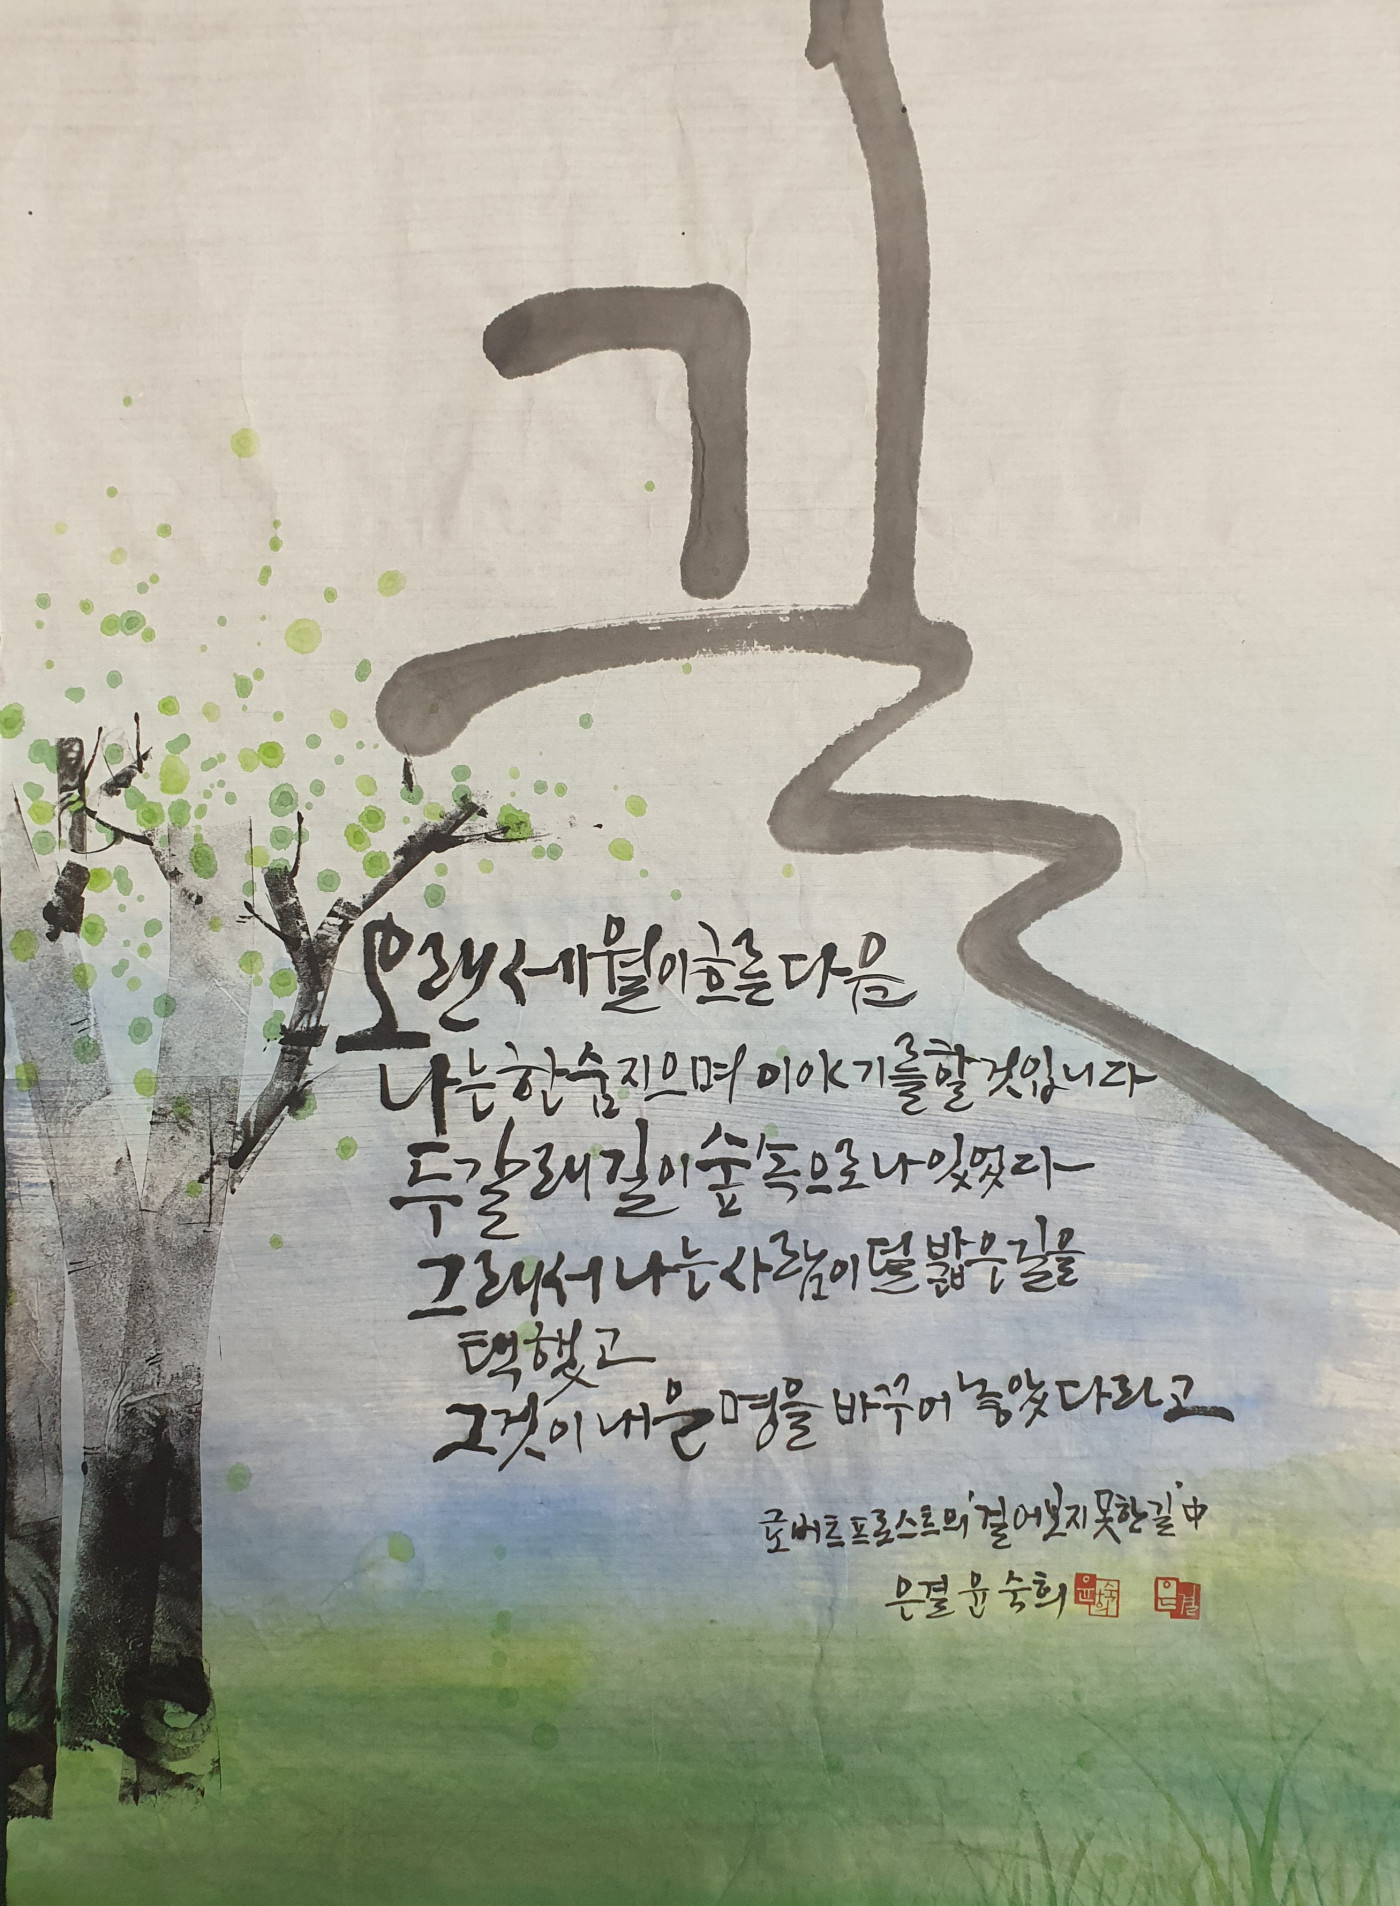 길
오랜 세월이 흐른 다음
나는 한숨 지으며 이야기를 할 것입니다
두 갈래 길이 숲 속으로 나 있었다
그래서 나는 사람이 덜 밟은 길을
택했고
그것이 내 운명을 바꾸어 놓았다라고
로버트 프로스트의 '걸어보지 못한 길' 中
은결 윤숙희 윤숙희 은결